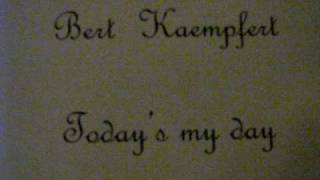 Bert Kaempfert
Today's my day